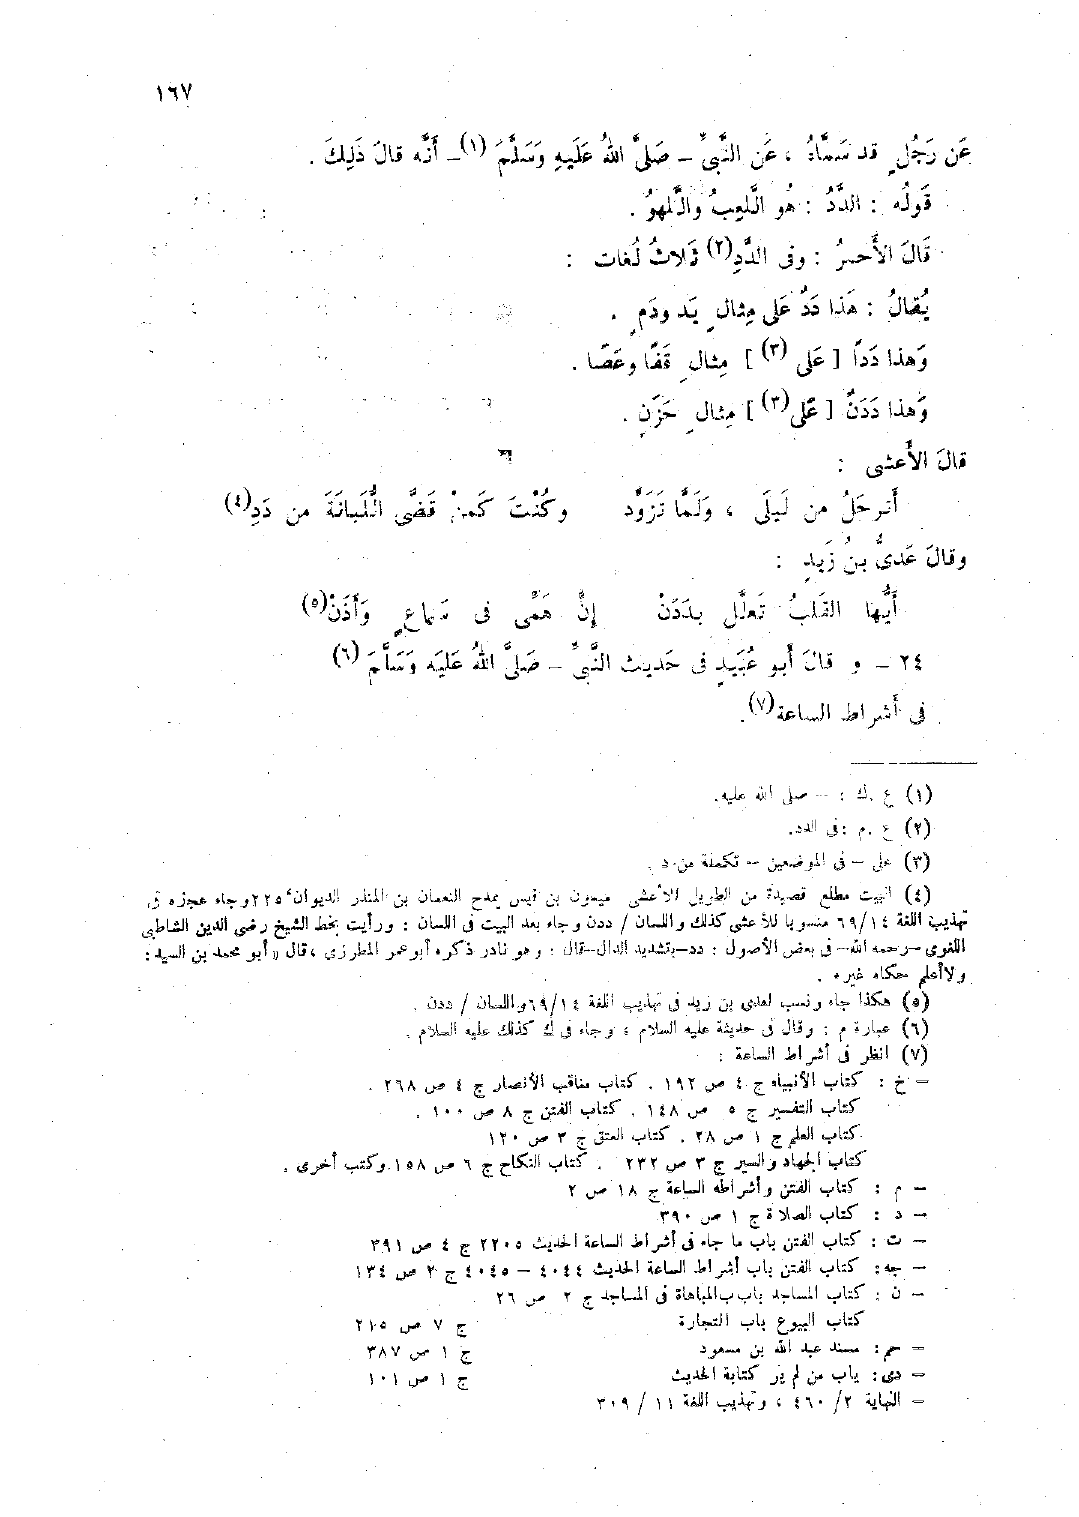 ١٦٧
عَن رَجُلٍ قد سَمَّاهُ ، عَن النَّبىِّ – صَلىَّ اللهُ عَلَيهِ وَسَلَّمَ (١)– أَنَّه قالَ ذَلِكَ .
قَولُه : الدَّدُ : هُو الَّلعِبُ والَّلهوُ .
قَالَ الأَحمرُ : وفى الدَّدِ(٢) ثَلاثُ لُغات :
يُقالُ : هَذا دَدٌ عَلى مِثالِ يَد ودَمٍ .
وَهذا دَداً [ عَلى (٣) ] مِثالِ قَفًا وعَصًا .
وَهذا دَدَنٌ [ عَلى(٣) ] مِثالِ حَزَنٍ .
قالَ الأَعشى :
أَترحَلُ من لَيلَى ، وَلَمَّا تَزَوَّد وكُنْتَ كَمنْ قَضَّى الُّلبَانَةَ من دَدِ(٤)
وقالَ عَدىُّ بنُ زَيدٍ :
أَيُّها القَلبُ تَعلَّل بدَدَنْ إنَّ هَمِّى فى سَماعٍ وَأَذَنْ(٥)
٢٤ – و قالَ أَبو عُبَيدٍ فى حَديث النَّبىِّ – صَلىَّ اللهُ عَلَيَه وَسَلَّمَ (٦)
فى أَشراط الساعة(٧).
(١) ع .ك : – صلى الله عليه.
(٢) ع .م :فى الدد.
(٣) على – فى الموضعين – تكملة من د .
(٤) البيت مطلع قصيدة من الطويل للأعشى ميمون بن قيس يمدح النعمان بن المنذر الديوان ٢٢٥وجاء عجزه فى
تهذيب اللغة ٦٩/١٤ منسوبا للأعشى كذلك واللسان / ددن وجاء بعد البيت فى اللسان : ورأيت بخط الشيخ رضى الدين الشاطبى
اللغوى –رحمه الله– فى بعض الأصول : دد–بتشديد الدال–قال : وهو نادر ذكره أبو عمر المطرزى ،قال « أبو محمد بن السيد :
ولا أعلم حكاه غيره .
(٥) هكذا جاء ونسب لعدى بن زيد فى تهذيب اللغة ٦٩/١٤واللسان / ددن .
(٦) عبارة م : وقال فى حديثة عليه السلام ، وجاء فى ك كذلك عليه السلام .
(٧) انظر فى أشراط الساعة :
– خ : كتاب الأنبياء ج ٤ ص ١٩٢ . كتاب مناقب الأنصار ج ٤ ص ٢٦٨ .
كتاب التفسير ج ٥ ص ١٤٨ . كتاب الفتن ج ٨ ص ١٠٠ .
كتاب العلم ج ١ ص ٢٨ . كتاب العتق ج ٣ ص ١٢٠
كتاب الجهاد والسير ج ٣ ص ٢٣٢ . كتاب النكاح ج ٦ ص ١٥٨.وكتب أخرى .
– م : كتاب الفتن وأشراطه الساعة ج ١٨ ص ٢
– د : كتاب الصلاة ج ١ ص ٣٩٠
– ت : كتاب الفتن باب ما جاء فى أشراط الساعة الحديث ٢٢٠٥ ج ٤ ص ٣٩١
– جه: كتاب الفتن باب أشراط الساعة الحديث ٤٠٤٤ – ٤٠٤٥ ج ٢ ص ١٣٤
– ن : كتاب المساجد باب ب المباهاة فى المساجد ج ٢ ص ٢٦
كتاب البيوع باب التجارة ج ٧ ص ٢١٥
– حم: مسند عبد الله بن مسعود ج ١ ص ٣٨٧
– دى: باب من لم ير كتابة الحديث ج ١ ص ١٠١
– النهاية ٢/ ٤٦٠ ، وتهذيب اللغة ١١ / ٣٠٩